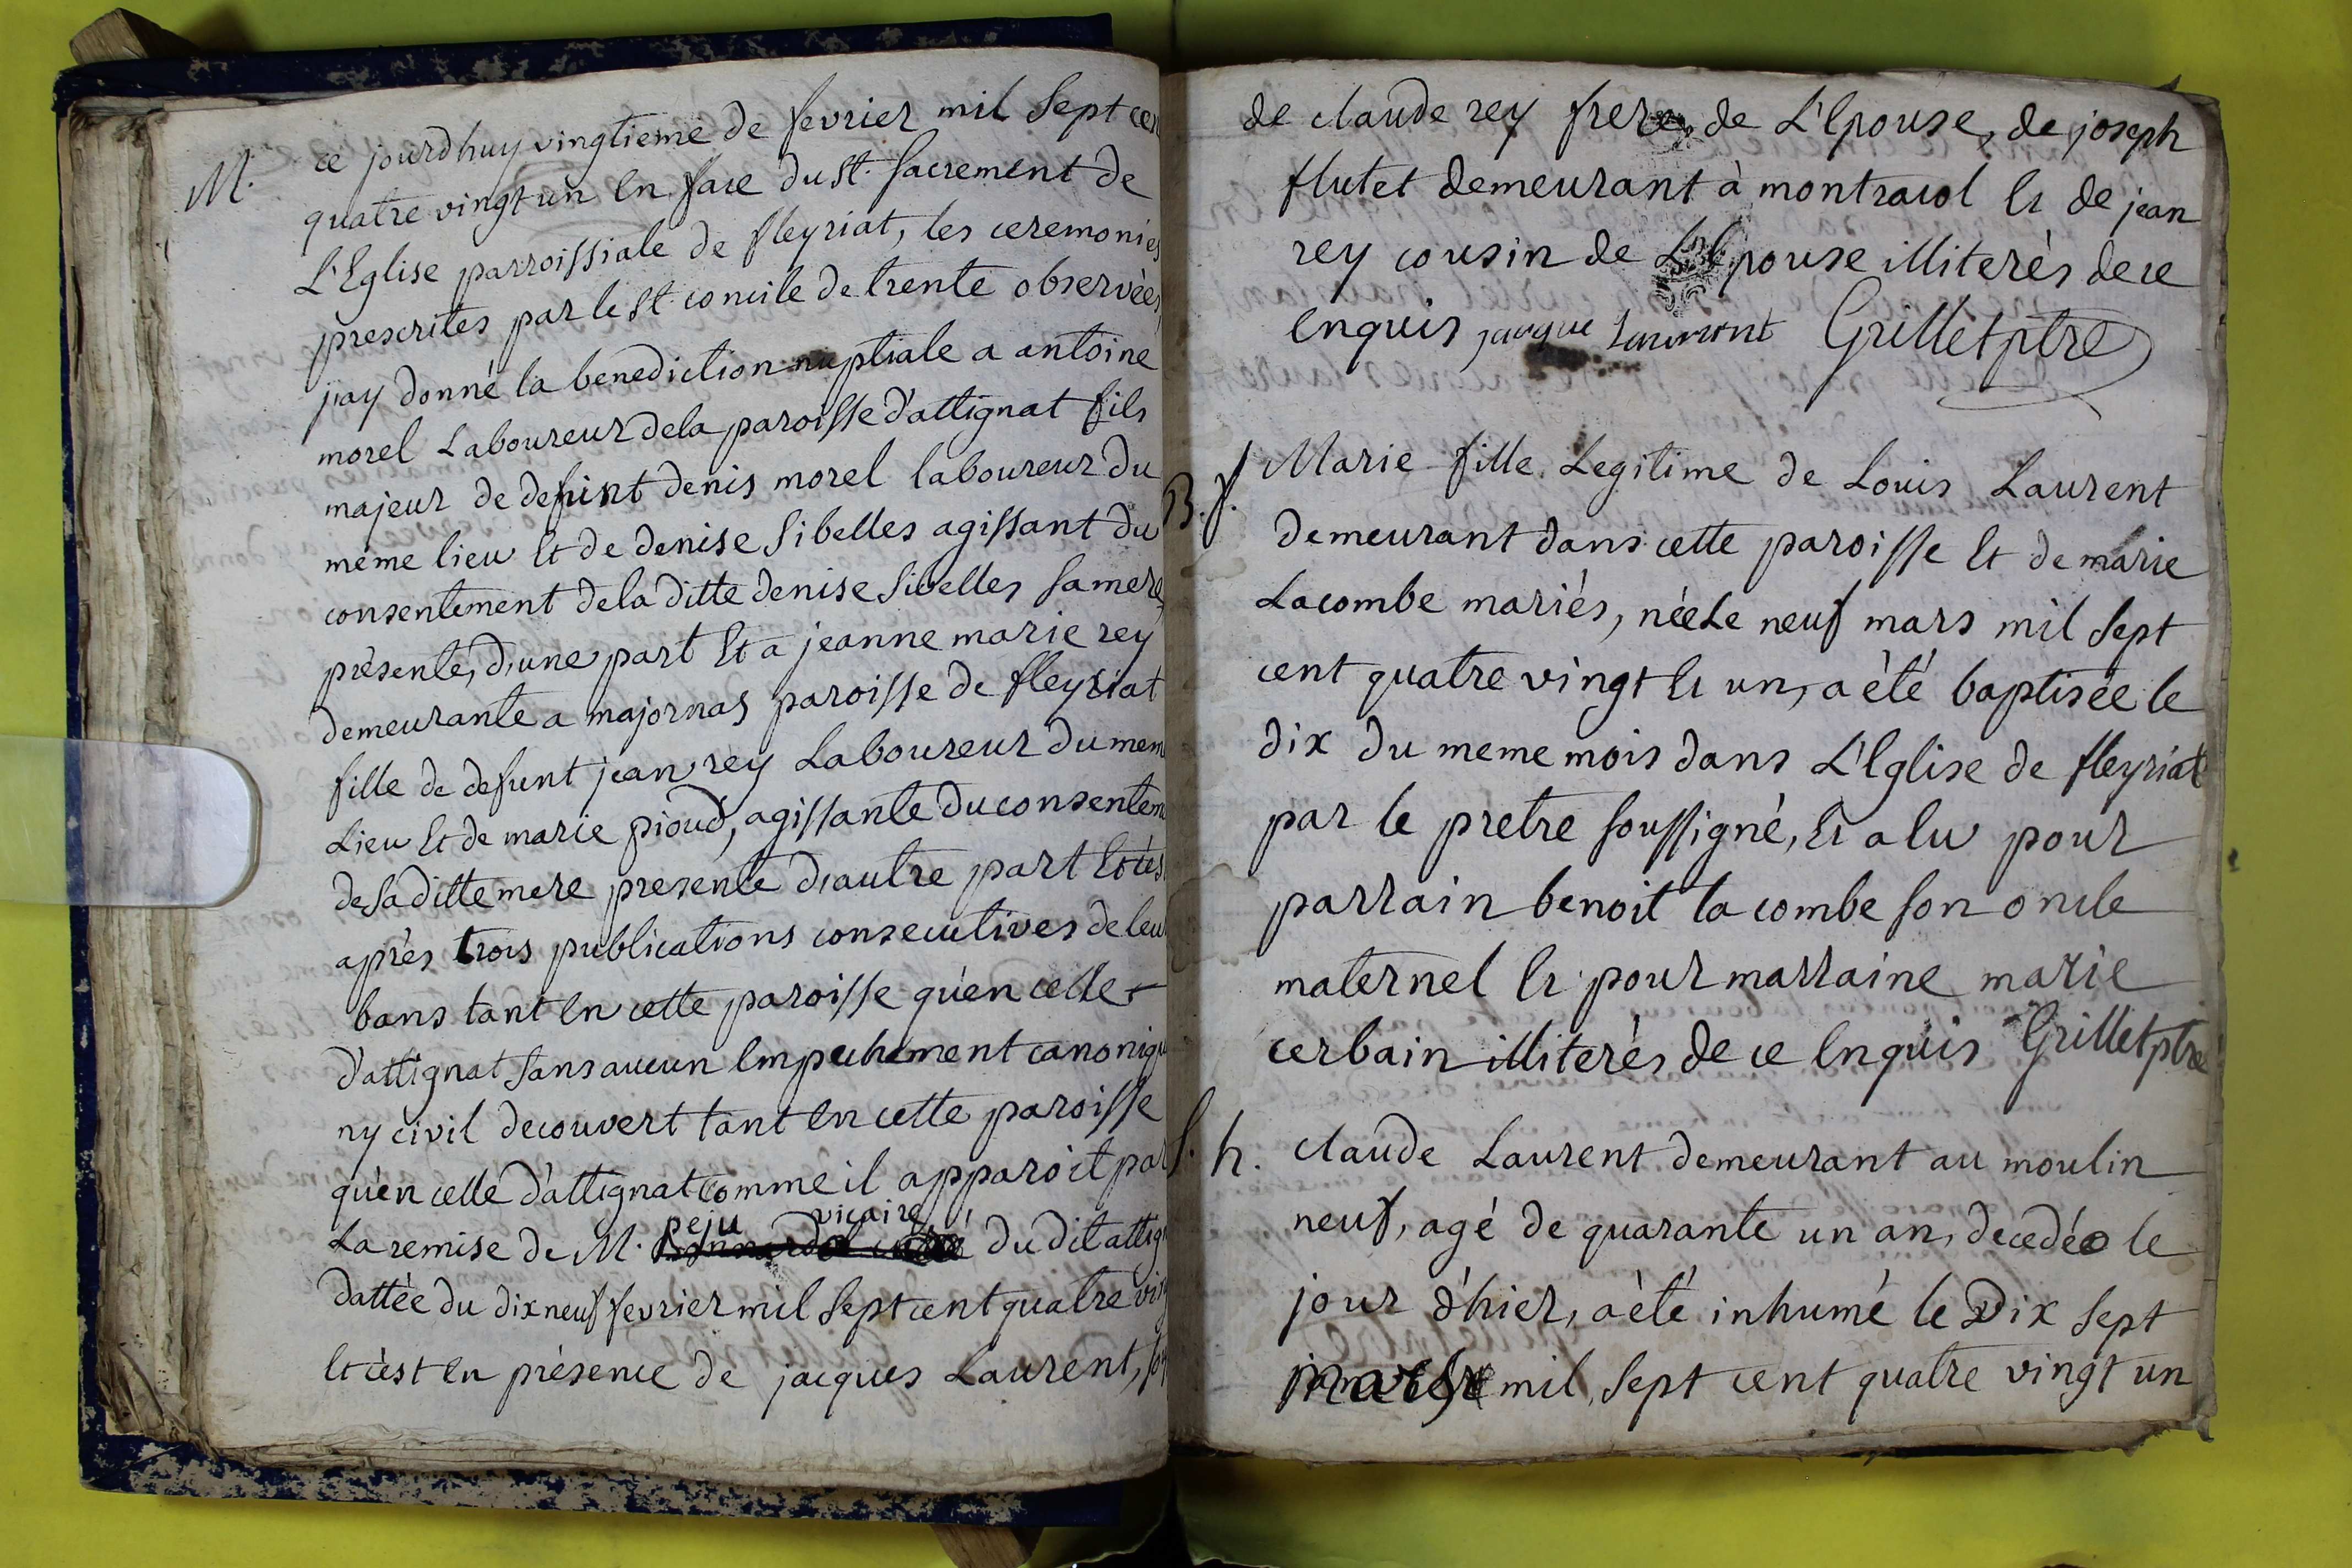 M. ce jourdhuy vingtieme de fevrier mil Sept cen
quatre vingt un En face du St. Sacrement de
L'Eglise parroissiale de fleyriat, les ceremonies
prescrites par le St. concile de trente observées,
j'ay donné la benediction nuptiale a antoine
morel Laboureur dela paroisse d'attignat fils
majeur de defunt denis morel laboureur du
même lieu Et de denise Sibelles agissant du
consentement dela ditte denise Sibelles sa mere,
présente, d'une part Et a jeanne marie rey
demeurante a majornas paroisse de fleyriat
fille de defunt jean rey Laboureur du mem
Lieu Et de marie pioud, agissante du consentem
de sa ditte mere presente d'autre part Et c'es
après trois publications consecutives de leu
bans tant En cette paroisse qu'en celle
d'attignat sans aucun Empechement canoniqu
ny civil decouvert tant En cette paroisse
qu'en celle d'attignat comme il apparoit par
peju vicaire
La remise de M. du dit attign
dattée du dix neuf fevrier mil Sept cent quatre vin
Et c'est En présence de jacques Laurent,
de claude rey frere de L'Epouse, de joseph
flutet demeurant à montracol Et de jean
rey cousin de L'Epouse illiterés de ce
Enquis jacque Lauront Grillet ptre
B. f. Marie fille Legitime de Louis Laurent
demeurant dans cette paroisse Et de marie
Lacombe mariés, née Le neuf mars mil Sept
cent quatre vingt Et un, a èté baptisée le
dix du meme mois dans L'Eglise de fleyriat
par le pretre soussigné, Et a Eu pour
parrain benoit lacombe son oncle
maternel Et pour marraine marie
cerbain illiterés de ce Enquis Grillet ptre
S. h. claude Laurent demeurant au moulin
neuf, agé de quarante un an, decedé le
jour d'hier, a èté inhumé le Dix Sept
mars mil Sept cent quatre vingt un